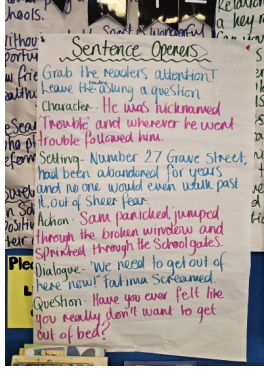 Sentence Openers
Grab the readers attention!
Leave the reader asking a question
Character - He was nicknamed
'Trouble' and wherever he went
trouble followed him.
Setting - Number 27 Grave Street,
had been abandoned for years
and no one would even walk past
it, out of sheer fear.
Action - Sam panicked, jumped
through the broken window and
sprinted through the School gates.
Dialogue - "We need to get out of
here now!" Fatima Screamed.
Question - Have you ever felt like
you really don't want to get
out of bed?